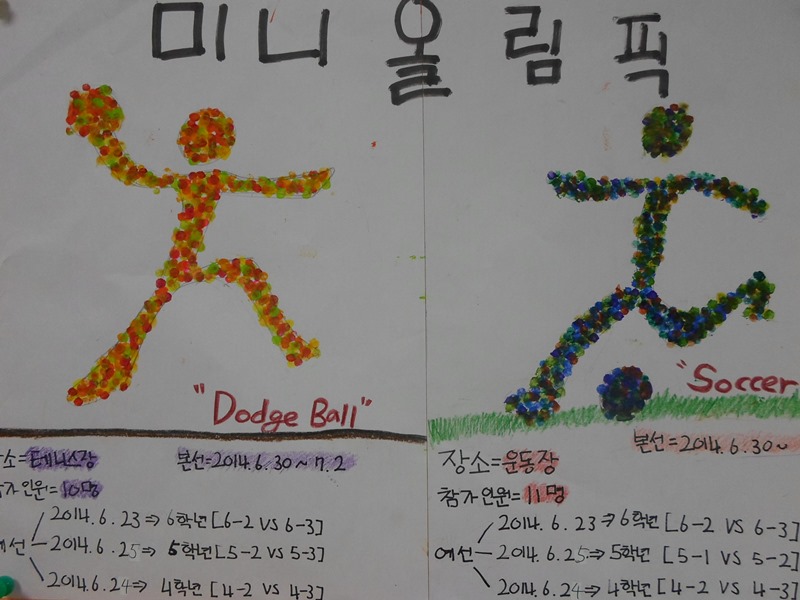 미니올림픽
"Dodge Ball"
소=테니스장 본선=2014.6.30~7.2
가인원=10명
2014.6.23⇒6학년[6-2 VS 6-3]
예선 2014.6.25⇒5학년[5-2 VS 5-3]
2014.6.24⇒4학년[4-2 VS 4-3]
"Soccer
본선=2014.6.30~
장소=운동장
참가인원=11명
2014.6.23⇒6학년[6-2 VS 6-3]
예선 2014.6.25⇒5학년[5-1 VS 5-2]
2014.6.24⇒4학년[4-2 VS 4-3]